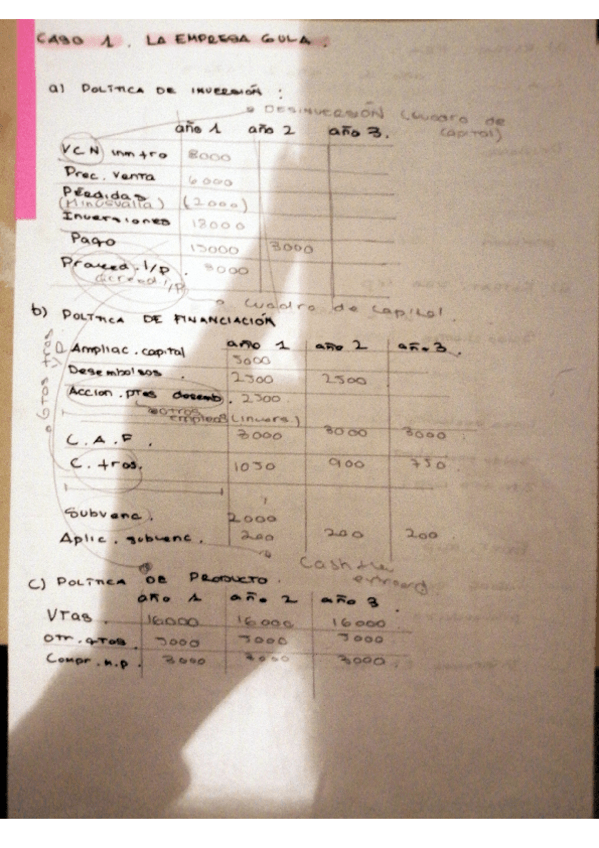 CASO 1. LA EMPRESA GULA.
a) POLÍTICA DE INVERSIÓN :
DESINVERSIÓN (Cuadro de capital)
año 1 año 2 año 3.
VCN inmtro 8000
Prec. venta 6000
Pérdidas (Minusvalía) (2000)
Inversiones 18000
Pago 15000 3000
Proveed. l/p. 3000
acreed l/p
Cuadro de capital.
b) POLÍTICA DE FINANCIACIÓN
año 1 año 2 año 3.
Ampliac. capital 5000
Desembolsos. 2500 2500
Accion. ptes desemb. 2500
otros empleos (invers.)
C. A. F. 3000 3000 3000
C. tros. 1050 900 750
Gtos tros l/p
Subvenc. 2000
Aplic. subvenc. 200 200 200
Cash
c) POLÍTICA DE PRODUCTO.
año 1 año 2 año 3.
VTAS. 16000 16000 16000
Otr. gtos. 5000 5000 5000
Compr. m.p. 3000 3000 3000